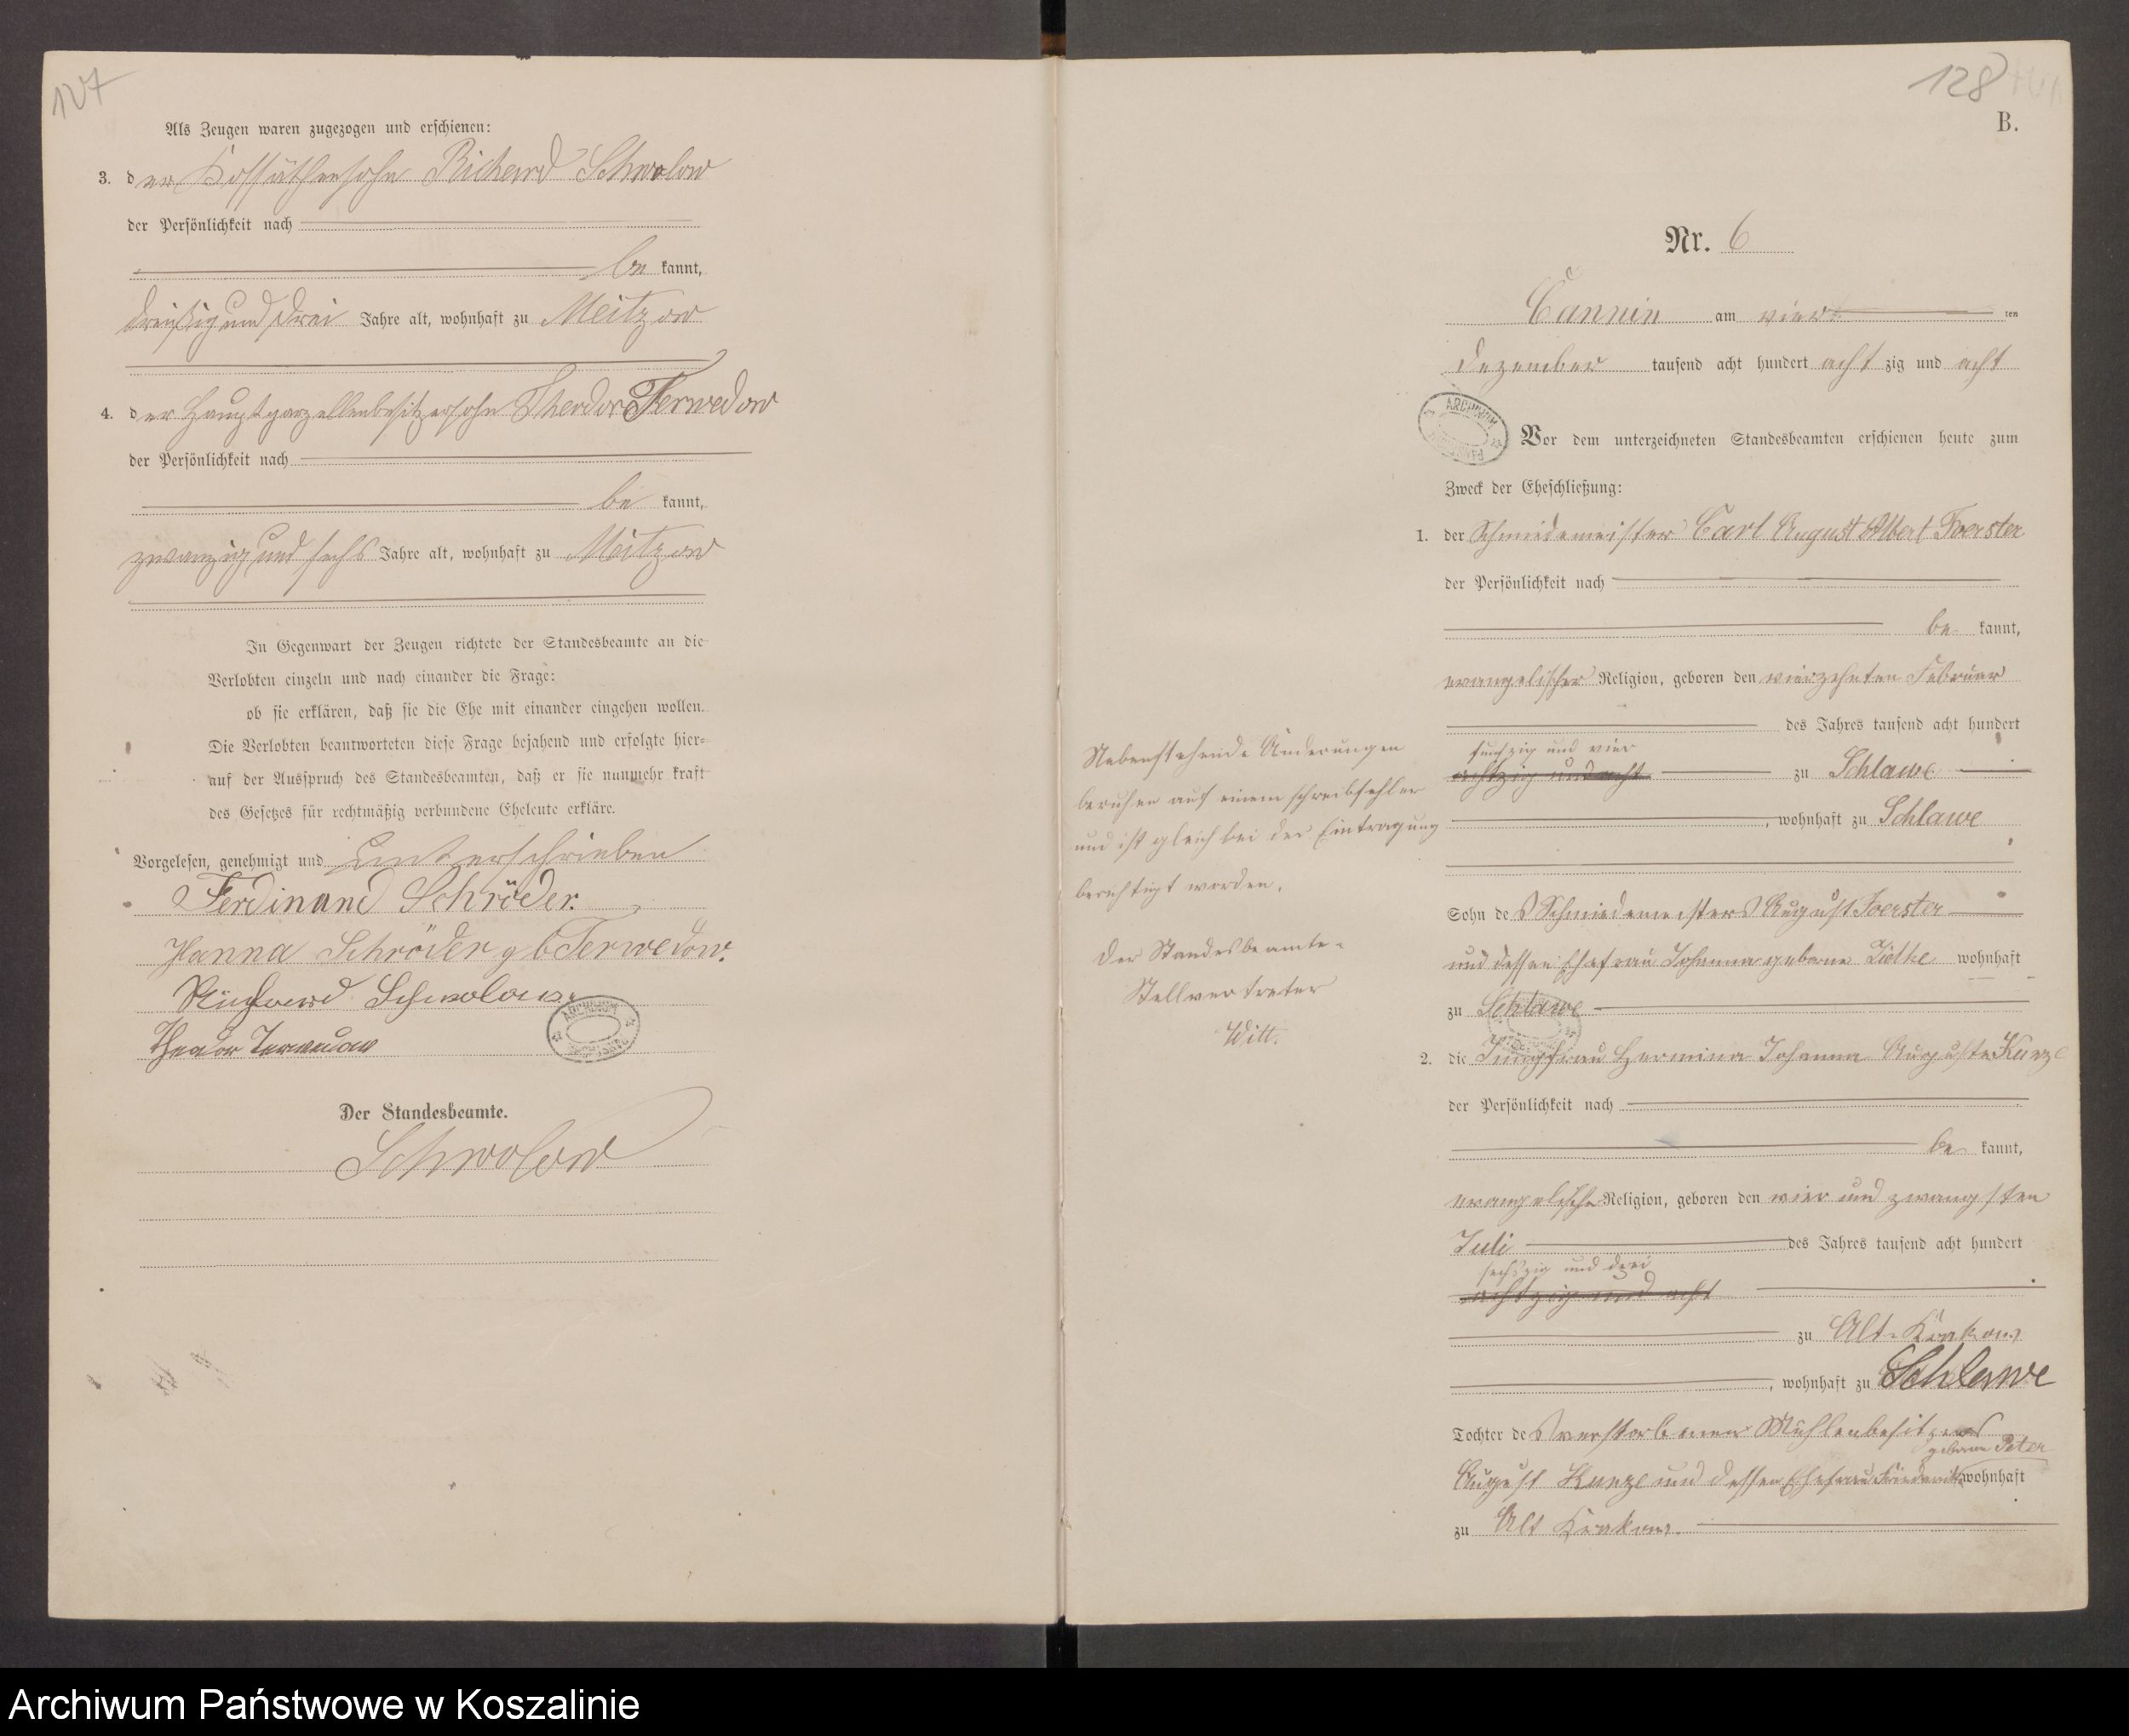 127
Als Zeugen waren zugezogen und erschienen:
3. der Kossäthensohn Richard Schwolow
der Persönlichkeit nach
be kannt,
dreißig und drei Jahre alt, wohnhaft zu Meitzow
4. der Hauptparzellenbesitzersohn Theodor Terwedow
der Persönlichkeit nach
be kannt,
zwanzig und sechs Jahre alt, wohnhaft zu Meitzow
In Gegenwart der Zeugen richtete der Standesbeamte an die
Verlobten einzeln und nach einander die Frage:
ob sie erklären, daß sie die Ehe mit einander eingehen wollen.
Die Verlobten beantworteten diese Frage bejahend und erfolgte hier-
auf der Ausspruch des Standesbeamten, daß er sie nunmehr kraft
des Gesetzes für rechtmäßig verbundene Eheleute erkläre.
Vorgelesen, genehmigt und unterschrieben
Ferdinand Schröder.
Hanna Schröder gb Terwedow.
Richard Schwolow.
Theodor Terwedow
ARCHIWUM
Der Standesbeamte.
Schwolow
128
B.
Nr. 6
Cannin am vier ten
Dezember tausend acht hundert acht zig und acht
ARCHIWUM
Vor dem unterzeichneten Standesbeamten erschienen heute zum
Zweck der Eheschließung:
1. der Schmiedemeister Carl August Albert Foerster
der Persönlichkeit nach
be kannt,
evangelischer Religion, geboren den vierzehnten Februar
des Jahres tausend acht hundert
funfzig und vier
achtzig und acht zu Schlawe
, wohnhaft zu Schlawe
Sohn des Schmiedemeisters August Foerster
und dessen Ehefrau Johanna geborne wohnhaft
zu Schlawe
2. die Jungfrau Hermina Johanna Auguste Kunze
der Persönlichkeit nach
be kannt,
evangelischer Religion, geboren den vier und zwangsten
Juli des Jahres tausend acht hundert
sechszig und drei
achtzig und acht
zu Alt-Krakow
, wohnhaft zu Schlawe
Tochter des verstorbenen Mühlenbesitzers
geborne Peter
August Kunze und dessen Ehefrau Friederike wohnhaft
zu Alt Krakow.
Nebenstehende Änderungen
beruhen auf einem schreibfehler
und ist gleich bei der Eintragung
berichtigt worden.
Der Standesbeamte-
Stellvertreter
Witt.
Archiwum Państwowe w Koszalinie